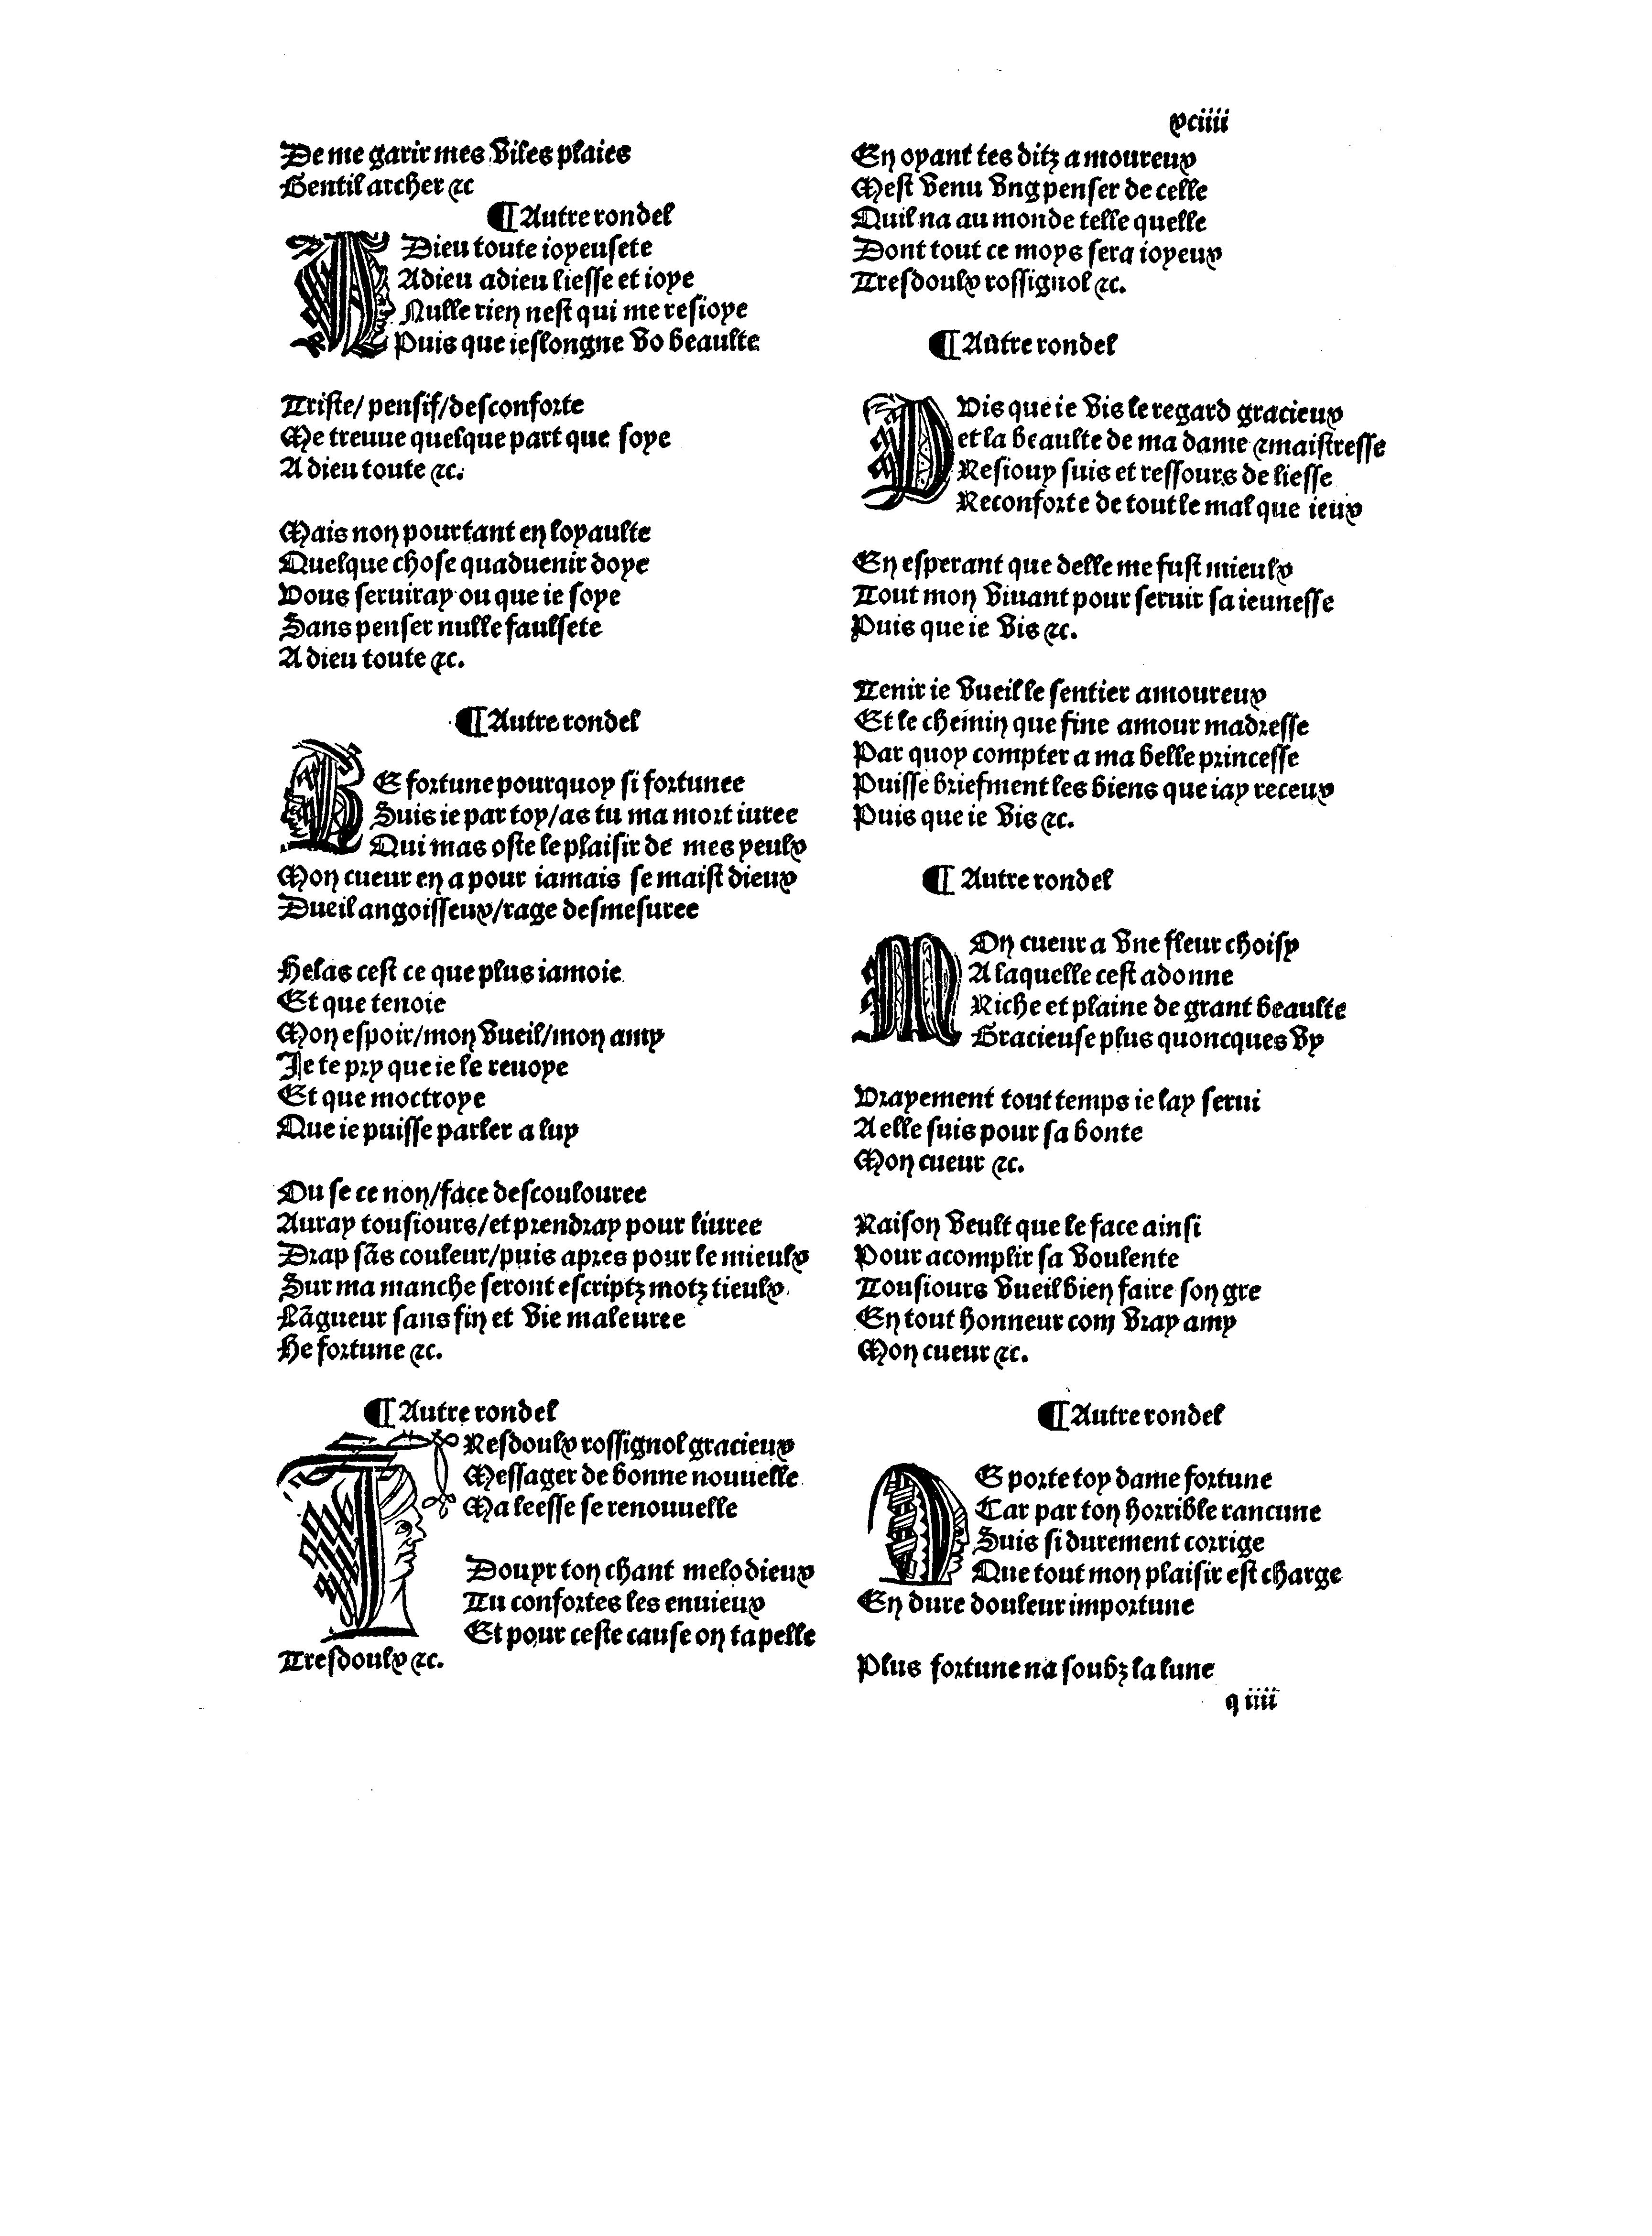 xciiii
De me garir mes viles plaies
Gentil archer ⁊c
¶ Autre rondel
ADieu toute ioyeusete
Adieu adieu liesse et ioye
Nulle rien nest qui me resioye
Puis que ieslongne vo beaulte
Triste/ pensif/desconforte
Me treuue quelque part que soye
A dieu toute ⁊c.
Mais non pourtant en loyaulte
Quelque chose quaduenir doye
Vous seruiray ou que ie soye
Sans penser nulle faulsete
A dieu toute ⁊c.
¶ Autre rondel
HE fortune pourquoy si fortunee
Suis ie par toy/as tu ma mort iuree
Qui mas oste le plaisir de mes yeulx
Mon cueur en a pour iamais se maist dieux
Dueil angoisseux/rage desmesuree
Helas cest ce que plus iamoie
Et que tenoie
Mon espoir/mon vueil/mon amy
Je te pry que ie le reuoye
Et que moctroye
Que ie puisse parler a luy
Ou se ce non/face descoulouree
Auray tousiours/et prendray pour liuree
Drap sãs couleur/puis apres pour le mieulx
Sur ma manche seront escriptz motz tieulx
Lãgueur sans fin et vie maleuree
He fortune ⁊c.
¶ Autre rondel
TResdoulx rossignol gracieux
Messager de bonne nouuelle
Ma leesse se renouuelle
Douyr ton chant melodieux
Tu confortes les enuieux
Et pour ceste cause on tapelle
Tresdoulx ⁊c.
En oyant tes ditz amoureux
Mest venu vng penser de celle
Quil na au monde telle quelle
Dont tout ce moys sera ioyeux
Tresdoulx rossignol ⁊c.
¶ Autre rondel
PVis que ie vis le regard gracieux
et la beaulte de ma dame ⁊ maistresse
Resiouy suis et ressours de liesse
Reconforte de tout le mal que ieux
En esperant que delle me fust mieulx
Tout mon viuant pour seruir sa ieunesse
Puis que ie vis ⁊c.
Tenir ie vueil le sentier amoureux
Et le chemin que fine amour madresse
Par quoy compter a ma belle princesse
Puisse briefment les biens que iay receux
Puis que ie vis ⁊c.
¶ Autre rondel
MOn cueur a vne fleur choisy
A laquelle cest adonne
Riche et plaine de grant beaulte
Gracieuse plus quoncques vy
Vrayement tout temps ie lay serui
A elle suis pour sa bonte
Mon cueur ⁊c.
Raison veult que le face ainsi
Pour acomplir sa voulente
Tousiours vueil bien faire son gre
En tout honneur com vray amy
Mon cueur ⁊c.
¶ Autre rondel
DE porte toy dame fortune
Car par ton horrible rancune
Suis si durement corrige
Que tout mon plaisir est charge
En dure douleur importune
Plus fortune na soubz la lune
q iiii